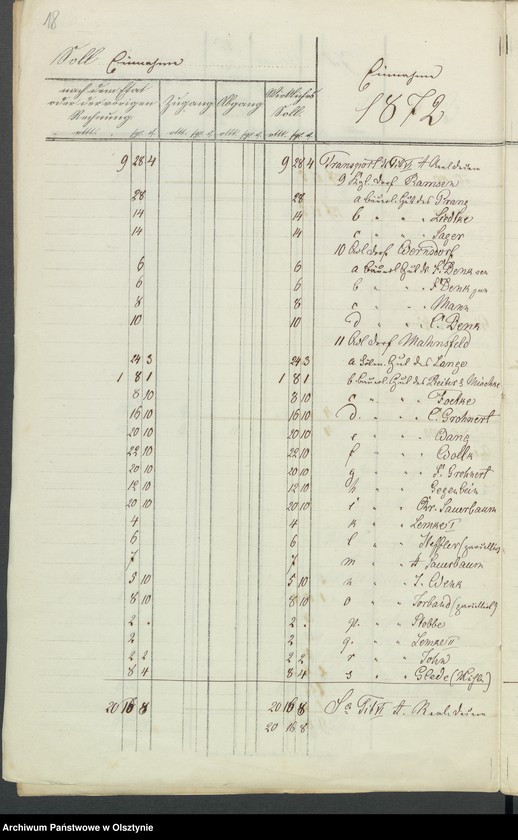 18
Soll Einnahme
Einnahme
1872
nach dem Etat oder der vorigen Rechnung
Zugang
Abgang
Wirkliches Soll
9 28 4 9 28 4 Transport Tit VI A Realdecem
9 Kgl. Dorf Ramsen
28 28 a bäuerl. Gut des Prang
14 14 b " " Liedtke
14 14 c " " Sager
10 Kol Dorf Werndorf
6 6 a bäuerl Gut des F. Denk sen
6 6 b " " F Denk jun
8 8 c " " Mann
10 10 d " " C. Denk
11 Kol Dorf Mahnsfeld
24 3 24 3 a Gut des Lange
1 8 1 1 8 1 b bäuerl. Gut des
8 10 8 10 c " "
16 10 16 10 d. " " C. Grohnert
20 10 20 10 e " " Wang
22 10 22 10 f " "
20 10 20 10 g " " F. Grohnert
12 10 12 10 h " " Gegenbein
20 10 20 10 i " " Chr. Sauerbaum
4 4 k " " Lemke I
6 6 l " "
7 7 m " " A Sauerbaum
5 10 5 10 n " " J. Wenk
8 10 8 10 o " " Torband
2 . 2 . p. " " Stobbe
2 2 q. " " Lemke II
2 2 2 2 r " " John
8 4 8 4 s " " Glede
20 16 8 20 16 8 Sa Tit VI A. Realdecem
20 16 8
Archiwum Państwowe w Olsztynie